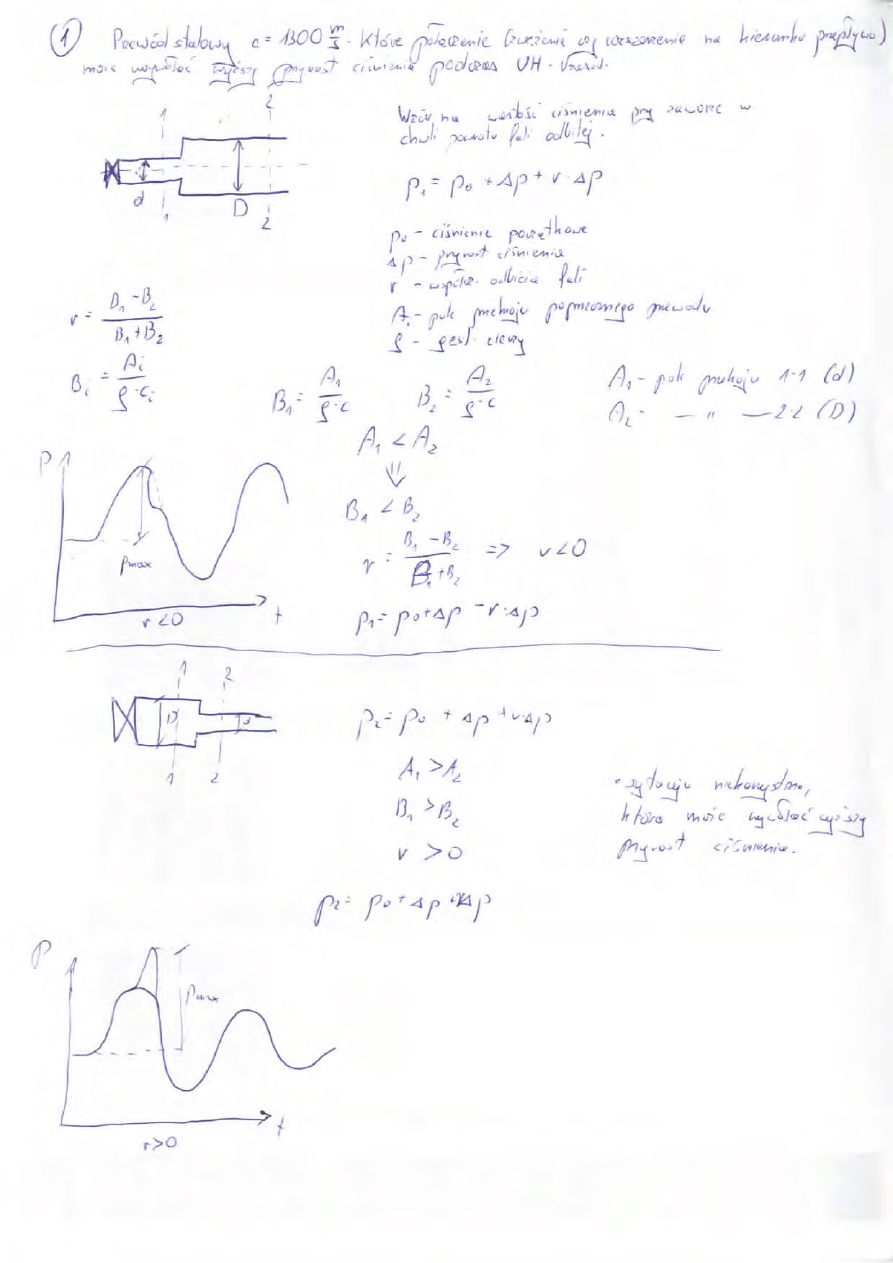 ① Przewód stalowy c = 1300 m/s. Które połączenie (zwężenie czy rozszerzenie na kierunku przepływu)
może wywołać wyższy przyrost ciśnienia podczas UH. Uzasad.
Wzór na wartość ciśnienia przy zaworze w
chwili powrotu fali odbitej.
1
2
d
D
1
2
p₁ = p₀ + Δp + r · Δp
p₀ - ciśnienie początkowe
Δp - przyrost ciśnienia
r - współcz. odbicia fali
Aᵢ - pole przekroju poprzecznego przewodu
ρ - gęst. cieczy
r = (B₁ - B₂)/(B₁ + B₂)
Bᵢ = Aᵢ/(ρ · cᵢ)
B₁ = A₁/(ρ · c)
B₂ = A₂/(ρ · c)
A₁ - pole przekroju 1-1 (d)
A₂ - — „ — 2-2 (D)
A₁ < A₂
⇓
B₁ < B₂
r = (B₁ - B₂)/(B₁ + B₂) => r < 0
p₁ = p₀ + Δp - r · Δp
P
pmax
r < 0
t
1
2
D
d
1
2
p₂ = p₀ + Δp + r · Δp
A₁ > A₂
B₁ > B₂
r > 0
p₂ = p₀ + Δp + rΔp
• sytuacja niekorzystna,
która może wywołać wyższy
przyrost ciśnienia.
P
pmax
r > 0
t